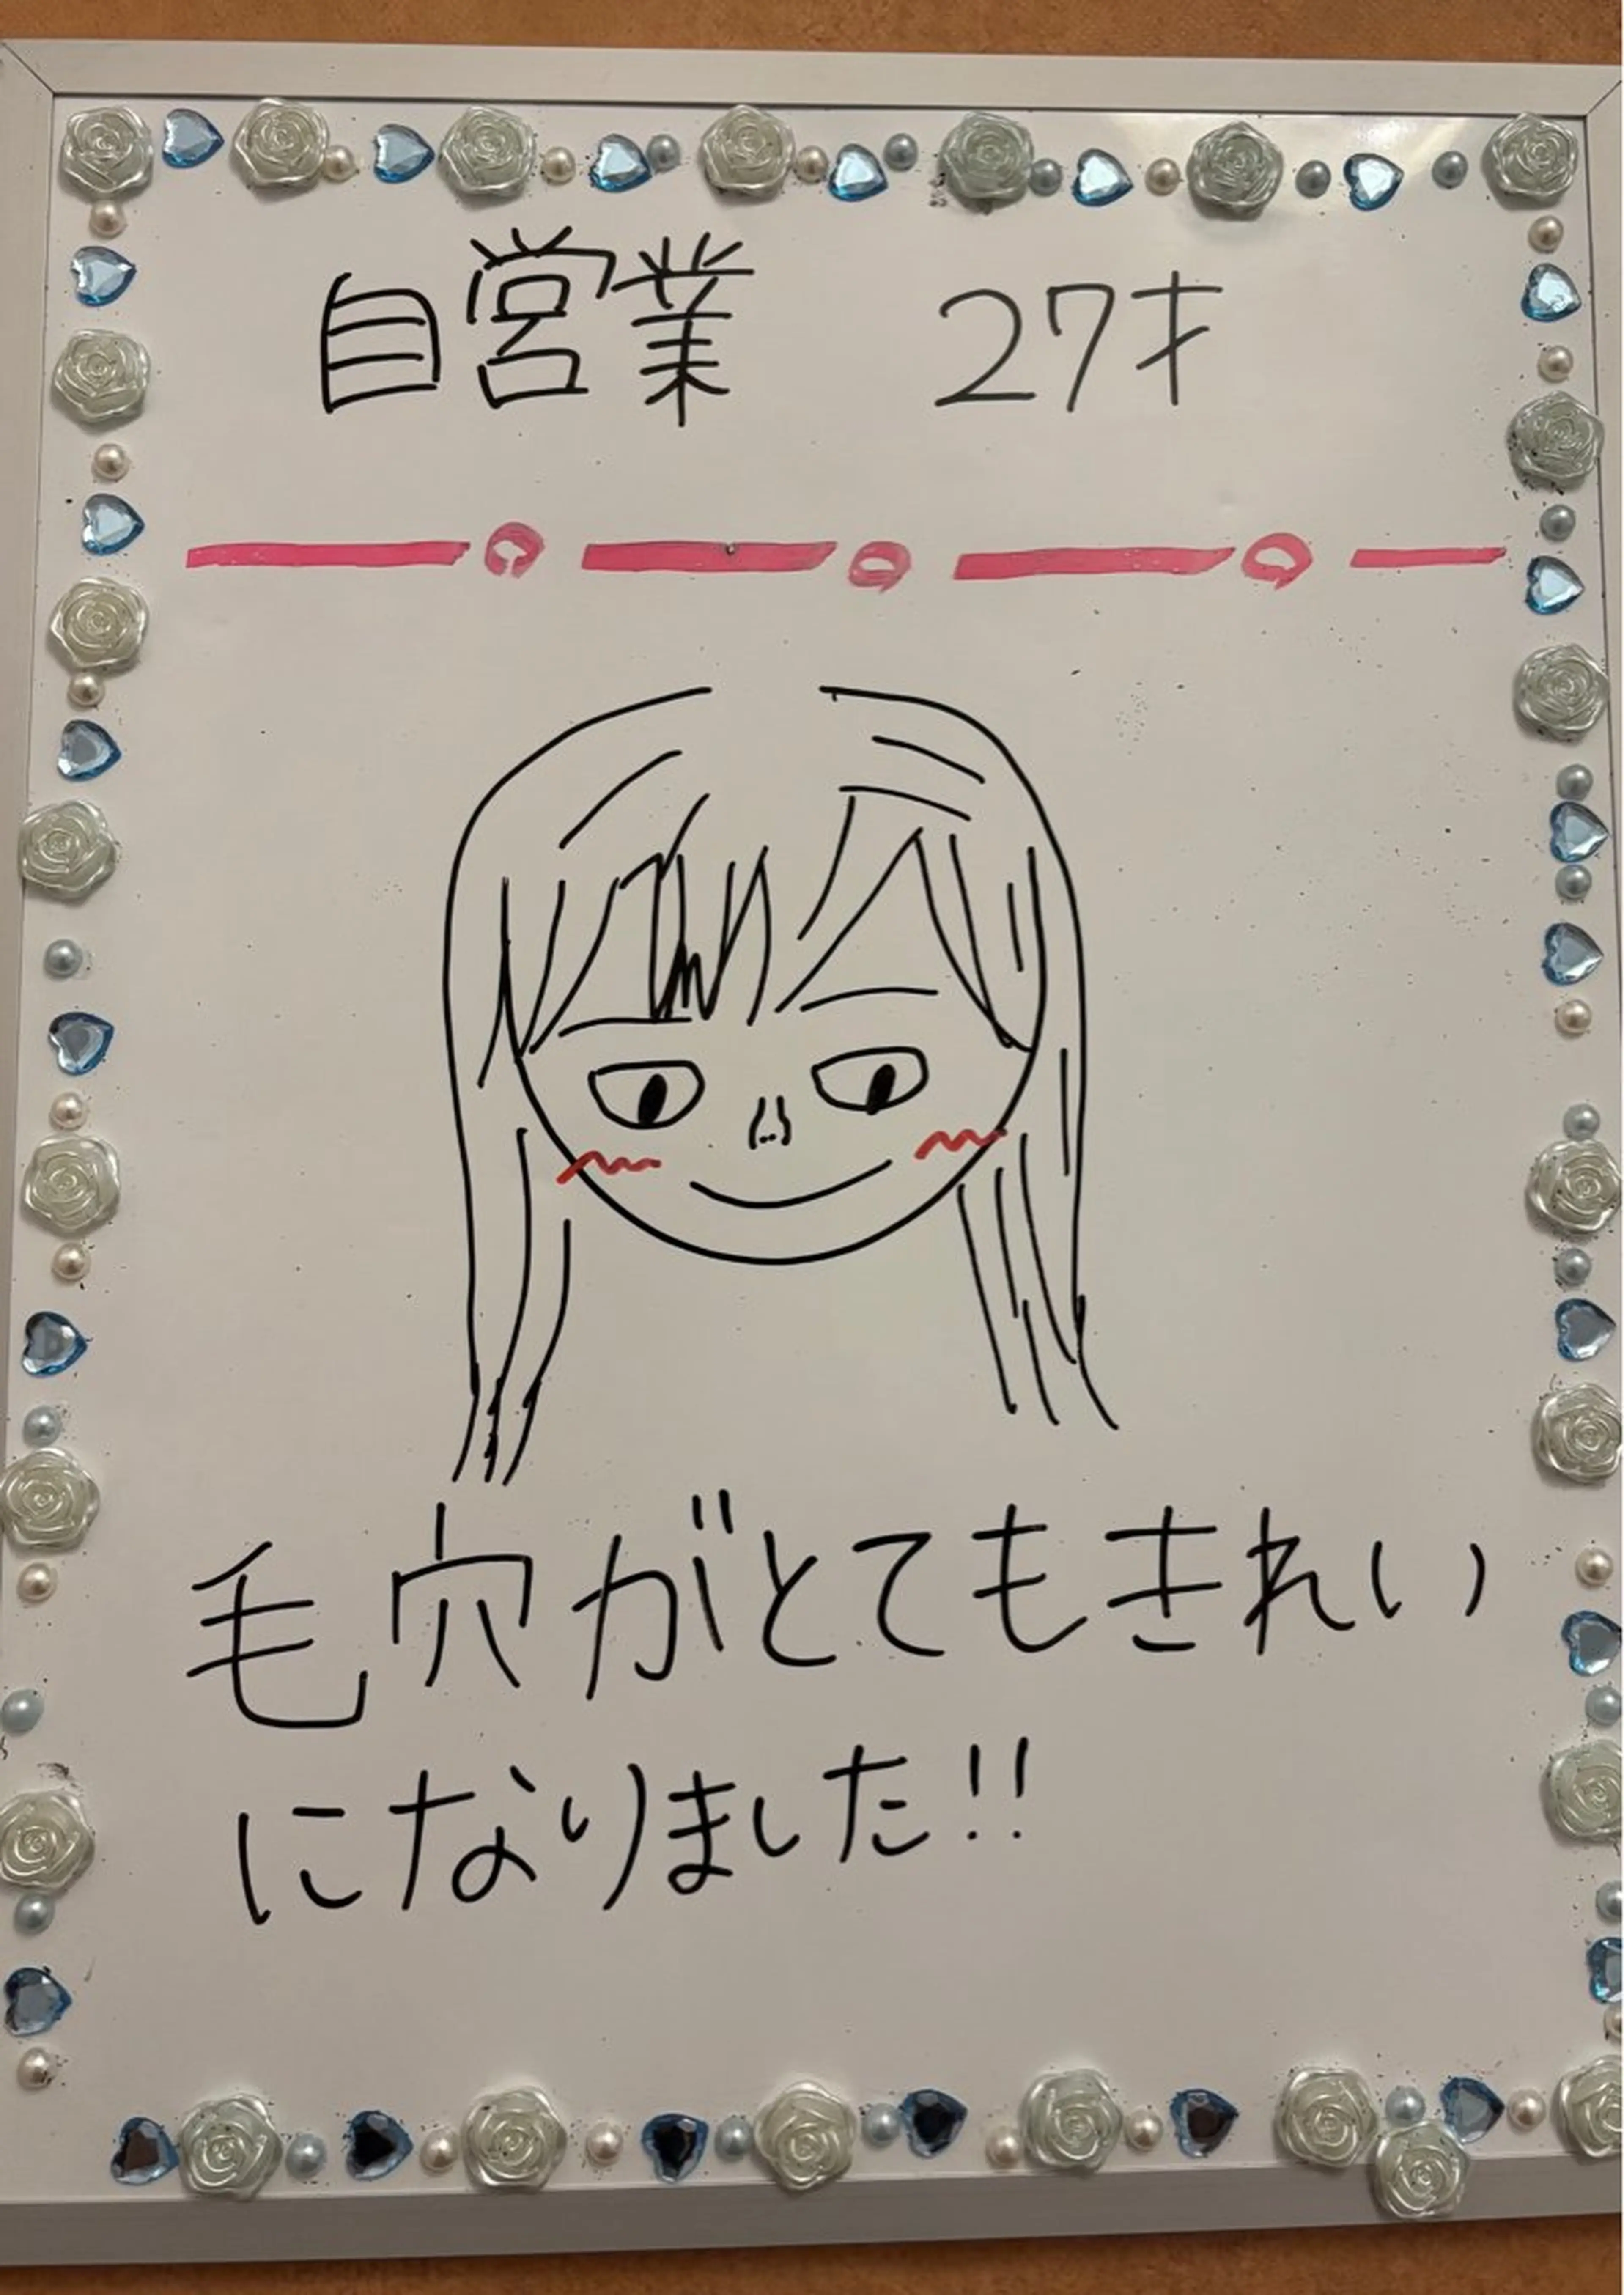 自営業 27才
毛穴がとてもきれい
になりました!!